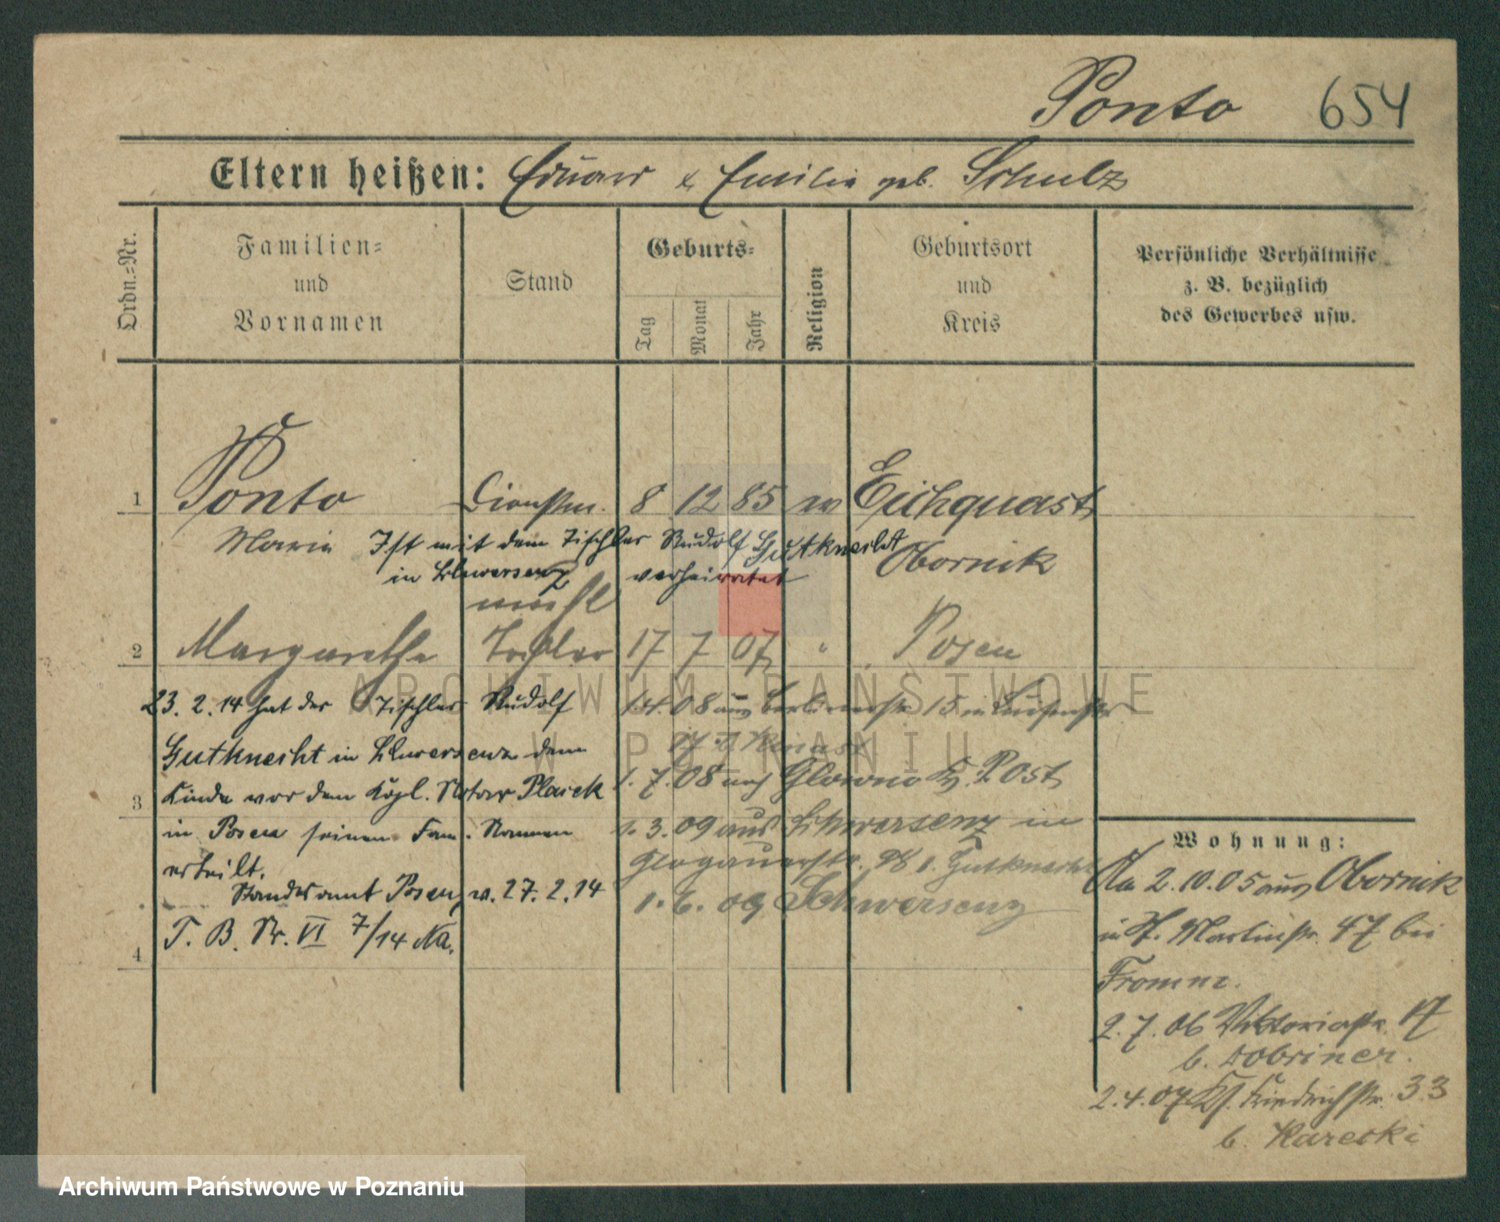 Ponto 654
Eltern heißen: Eduard & Emilie geb. Schulz
Ordn.=Nr.
Familien=
und
Vornamen
Stand
Geburts=
Tag
Monat
Jahr
Religion
Geburtsort
und
Kreis
Persönliche Verhältnisse
z. B. bezüglich
des Gewerbes usw.
1 Ponto Dienstm. 8 12 85 ev Eichquast
Marie Ist mit dem Tischler Rudolf Gutknecht Obornik
in Schwersenz verheiratet
unehl
2 Margarethe Tochter 17 7 07 " Posen
23. 2. 14 hat der Tischler Rudolf
Gutknecht in Schwersenz dem
Kinde vor dem Kögl. Notar Plaick
3 in Posen seinen Fam. Namen
erteilt.
Standesamt Posen v. 27. 2. 14
T. B. Nr. VI 7/14 Na.
4
1.4.08 aus Berlinerstr 15 in
1. 7. 08 nach Glowno Kr. P. Ost
1. 3. 09 aus Schwersenz in
Glogauerstr. b. Gutknecht
1. 6. 09 Schwersenz
Wohnung:
Na 2. 10. 05 aus Obornik
in St. Martinstr. 47 bei
Fromm.
2. 7. 06 Viktoriastr. 17
b. Dobriner.
2. 4. 07 Ks. Friedrichstr. 33
b. Kareski
ARCHIWUM PAŃSTWOWE
W POZNANIU
Archiwum Państwowe w Poznaniu